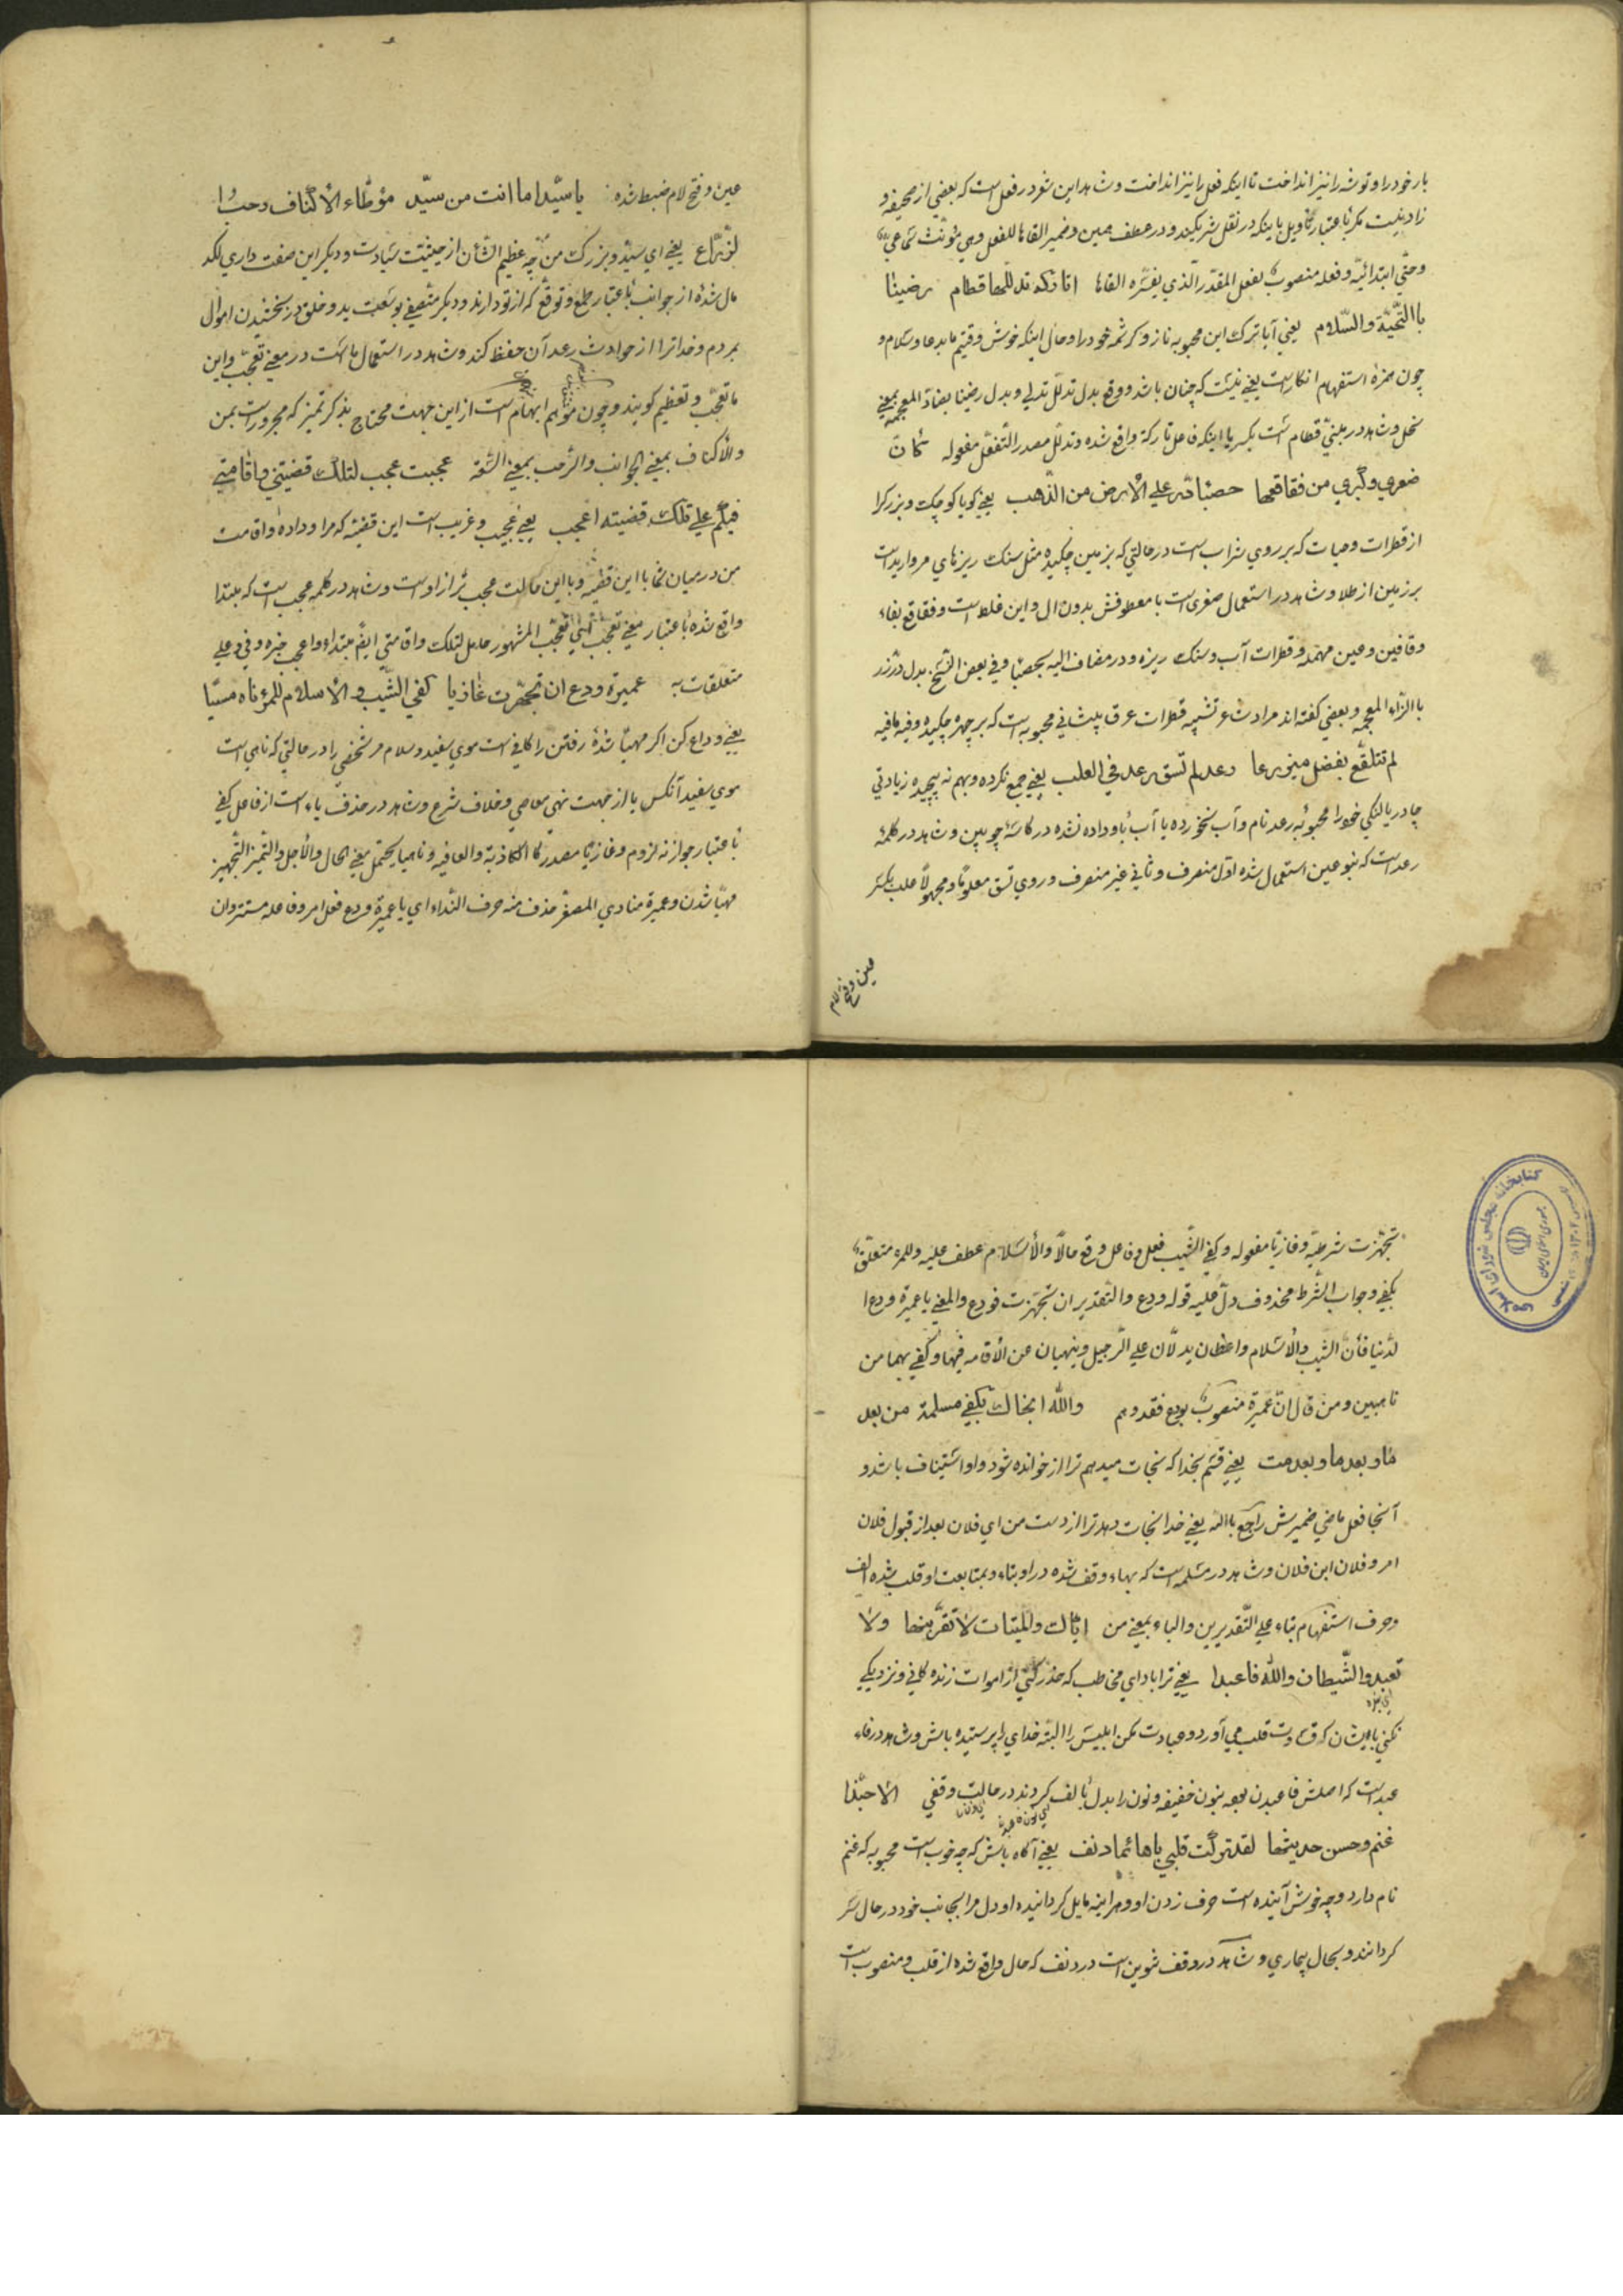 بار خود را و توشه را نیز انداخت تا اینکه فعل را نیز انداخت و شاهد این شعر در فعل است که بعضی از صحیفه و
زاد نیست مکر باعتبار تاویل باینکه در نقل شریکند و در عطف همین و ضمیر القاها للفعل وهی مؤنث سماعی
وحتی ابتدائیة وفعله منصوب بفعل المقدر الذی یفسره القاها اتارکة تدللها قطام رضینا
باالتحیة والسلام یعنی آیا ترک این محبوبه ناز و کرشمه خود را و حال اینکه خوش وقتیم ما بدعا و سلام و
چون همزه استفهام انکار است یعنی نیست که چنان باشد و وقع بدل تدلل تدلی و بدل رضینا بضاد المعجمه بمعنی
نخل و شاهد در مبنی قطام است بکسر با اینکه فاعل تارکة واقع شده وتدلل مصدر التفعل مفعوله کان
صغری وکبری من فقاقعها حصباء در علی الارض من الذهب یعنی کویا کوچک و بزرک را
از قطرات و حبات که بر روی شراب است در حالتی که بزمین چکیده مثل سنک ریزهای مروارید است
بر زمین از طلا و شاهد در استعمال صغری است با معطوفش بدون ال و این غلط است و فقاقع بفاء
وقافین وعین مهمله قطرات آب و سنک ریزه و در مضاف الیه بحصبا وفی بعض النسخ بدل در زر
باالزاء المعجمه و بعضی کفته اند مراد شاعر تشبیه قطرات عرق پیشانی محبوبه است که بر چهره چکیده وفیه مافیه
لم تتلفع بفضل میزرها دعد لم تسق دعد فی العلب یعنی جمع نکرده و بهم نه پیچیده زیادتی
چادر یا لنکی خود را محبوبه رعد نام و آب نخورده یا آب باو داده نشده در کاسه چوبین و شاهد در کلمه
رعد است که بنوعین استعمال شده اول منصرف و ثانی غیر منصرف و روی تسق معلوما ومجهولا علب بکسر
عین و فتح لام
عین و فتح لام ضبط شده یا سیدا ما انت من سید موطاء الاکناف رحب
الذراع یعنی ای سید و بزرک من چه عظیم الشأن از حیثیت سیادت و دیکر این صفت داری لکد
مال شده از جوانب باعتبار طمع و توقع که از تو دارند و دیکر متصفی بوسعت ید و خلق در بخشیدن اموال
بمردم و خدا ترا از حوادث رعد آن حفظ کند و شاهد در استعمال ما است در معنی تعجب و این
ما تعجب و تعظیم کویند و چون موهم ابهام است از این جهت محتاج بذکر تمیز که مجرور است بمن
والاکناف بمعنی الجوانب والرحب بمعنی السعة عجبت عجب لتلک قضیتی واقامتی
فیکم علی تلک قضیته اعجب یعنی عجیب و غریب است این قضیه که مرا و داده و اقامت
من در میان شما با این قضیه و با این حالت عجب تر از او است و شاهد در کلمه عجب است که مبتدا
واقع شده باعتبار معنی تعجب المشهور حامل لتلک واقامتی ایضا مبتداء واعجب خبره وفی وعلی
متعلقات به عمیرة ودع ان تجهزت غازیا کفی الشیب والاسلام للمرء ناهیا
یعنی وداع کن اکر مهیا شدهٔ رفتن را کافی است موی سفید و سلام مر شخصی را در حالتی که ناهی است
موی سفید آنکس یا از جهت نهی معاصی و خلاف شرع و شاهد در حذف باء است از فاعل کفی
باعتبار جواز نه لزوم وغازیا مصدر کا الکاذبة والعافیه وناهیا یحتمل معنی الحال والاجل والتمیز التجهیز
مهیا شدن وعمیرة منادی المصغر حذف منه حرف النداء ای یا عمیرة ودع فعل امر وفاعله مستتر وان
تجهزت شرطیة وغازیا مفعوله وکفی الشیب فعل وفاعل وقع حالا والاسلام عطف علیه وللمرء متعلق
بکفی وجواب الشرط محذوف دل علیه قوله ودع والتقدیر ان تجهزت فودع والمعنی یا عمیرة ودع ا
لدنیا فأن الشیب والاسلام واعظان یدلان علی الرحیل وینهیان عن الاقامة فیها وکفی بهما من
ناهیین ومن قال ان عمیرة منصوب بودع فقد وهم والله انجاک بکفی مسلمة من بعد
ما وبعد ما وبعدمت یعنی قسم بخدا که نجات میدهم ترا ار خوانده شود واو استیناف باشد و
آنجا فعل ماضی ضمیرش راجع باالله یعنی خدا نجات دهد ترا از دست من ای فلان بعد از قبول فلان
امر و فلان ابن فلان و شاهد در مسلمه است که بهاء وقف شده در او بتاء و بمتابعت او قلب شده الف
وحرف استفهام بتاء علی التقدیرین والباء بمعنی من ایاک والمیتات لا تقربنها ولا
تعبدوا الشیطان والله فاعبدا یعنی ترا باد ای مخاطب که حذر کنی از اموات زنده کافی و نزدیکی
نکنی باایشان که قساوت قلب می آورد و عبادت مکن ابلیس را البته خدای را پرستیده باش و شاهد در فاء
عبد است که اصلش فاعبدن بوده بنون خفیفه و نون را بدل بالف کردند در حالت وقفی الا حبذا
غنم وحسن حدیثها لقد ترکت قلبی بها هائما دنف یعنی آکاه باش که چه خوب است محبوبه که غنم
نام دارد و چه خوش آینده است حرف زدن او و هر اینه مایل کردانیده او دل مرا بجانب خود در حال سر
کردانند و بحال بیماری و شاهد در وقف تنوین است در دنف که حال واقع شده از قلب و منصوب است
کتابخانه مجلس شورای اسلامی